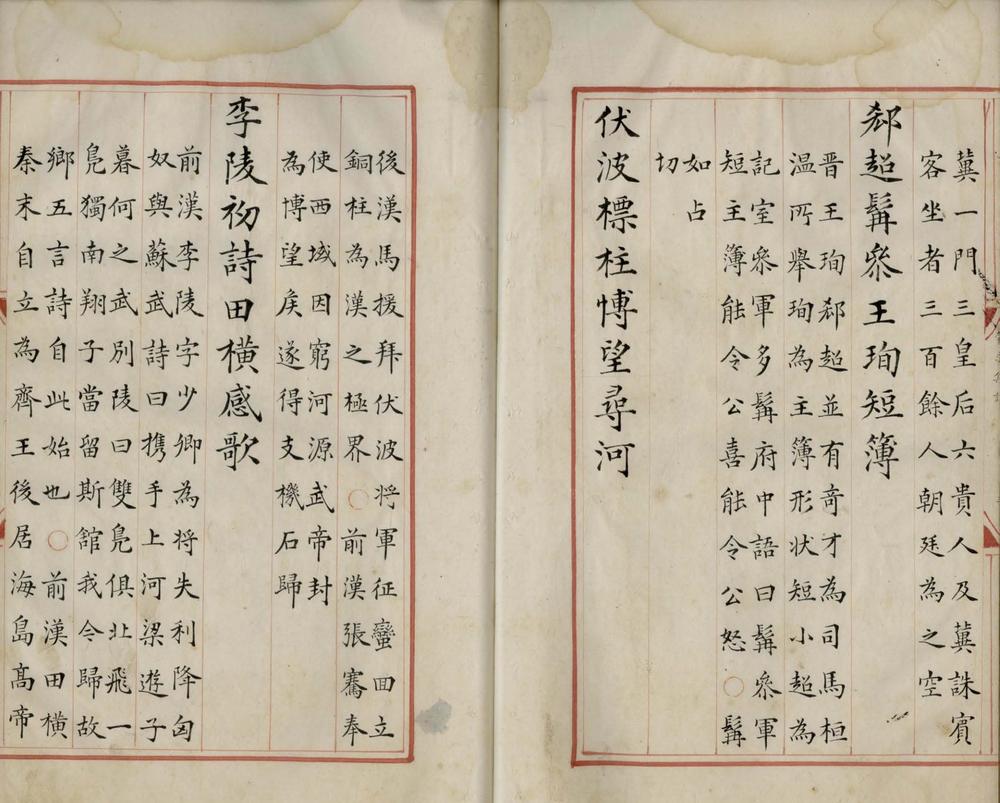 蓂一門三皇后六貴人及蓂誅賓
客坐者三百餘人朝廷為之空
郄超髯叅王珣短簿
晋王珣郄超並有竒才為司馬桓
温所舉珣為主簿形状短小超為
記室叅軍多髯府中語曰髯叅軍
短主簿能令公喜能令公怒○髯
如占
切
伏波標柱愽望尋河
後漢馬援拜伏波将軍征蠻回立
銅柱為漢之極界○前漢張騫奉
使西域因窮河源武帝封
為博望矦遂得支機石歸
李陵初詩田横感歌
前漢李陵字少卿為将失利降匈
奴與蘇武詩曰携手上河梁遊子
暮何之武别陵曰雙鳬俱北飛一
鳬獨南翔子當留斯舘我今歸故
鄉五言詩自此始也○前漢田横
秦末自立為齊王後居海島髙帝